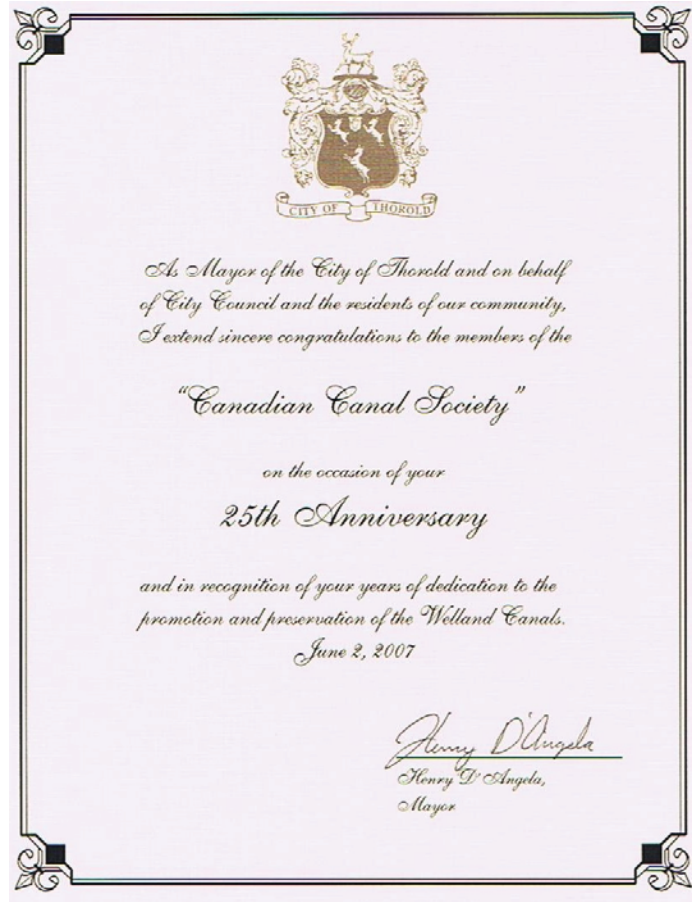 CITY OF THOROLD
As Mayor of the City of Thorold and on behalf
of City Council and the residents of our community,
I extend sincere congratulations to the members of the
"Canadian Canal Society"
on the occasion of your
25th Anniversary
and in recognition of your years of dedication to the
promotion and preservation of the Welland Canals.
June 2, 2007
Henry D'Angela
Henry D'Angela,
Mayor